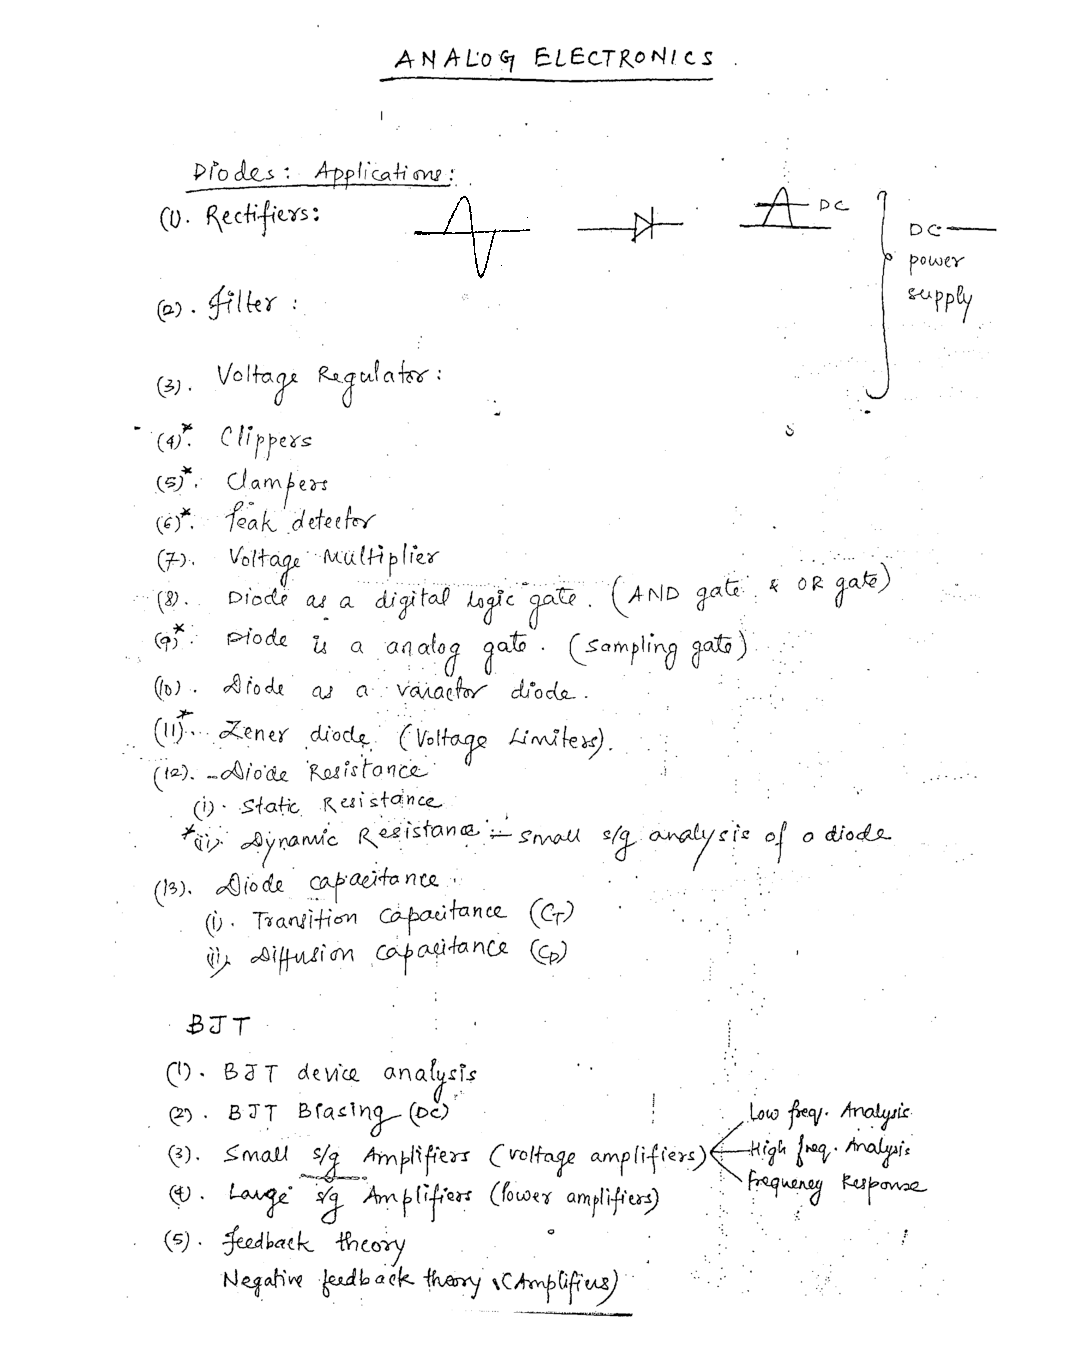 ANALOG ELECTRONICS
Diodes: Applications:
(1). Rectifiers:
DC
DC
power
supply
(2). Filter :
(3). Voltage Regulator:
(4)*. Clippers
(5)*. Clampers
(6)*. Peak detector
(7). Voltage Multiplier
(8). Diode as a digital logic gate. (AND gate & OR gate)
(9)*. Diode is a analog gate. (Sampling gate)
(10). Diode as a varactor diode.
(11)*. Zener diode (Voltage Limiters).
(12). Diode Resistance
(i). Static Resistance
*(ii). Dynamic Resistance :- small s/g analysis of a diode
(13). Diode capacitance.
(i). Transition capacitance (CT)
(ii). Diffusion capacitance (CD)
BJT
(1). BJT device analysis
(2). BJT Biasing (DC)
(3). Small s/g Amplifiers (voltage amplifiers)
Low freq. Analysis
High freq. Analysis
Frequency Response
(4). Large s/g Amplifiers (Power amplifiers)
(5). Feedback theory
Negative feedback theory (Amplifiers)